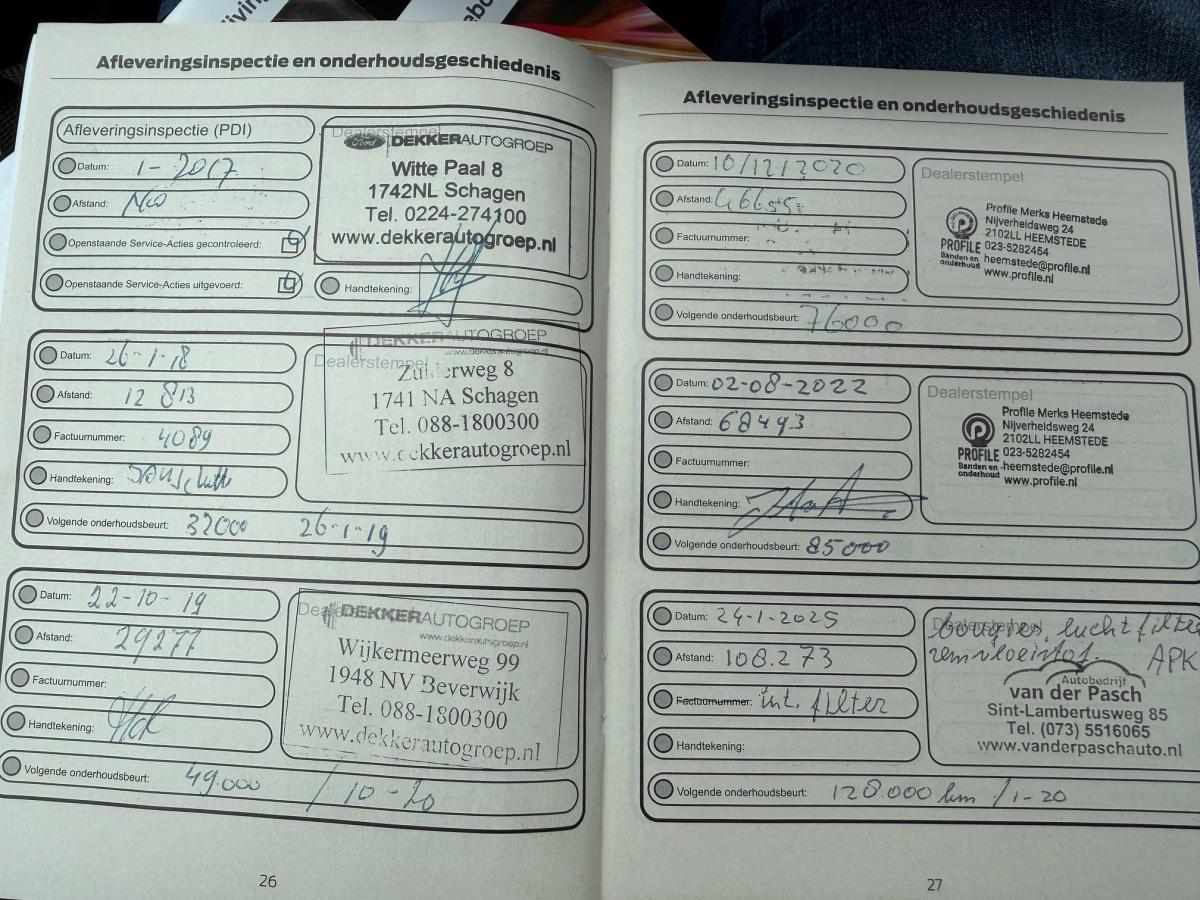 iving
Afleveringsinspectie en onderhoudsgeschiedenis
Afleveringsinspectie (PDI)
Datum: 1-2017
Afstand:
Openstaande Service-Acties gecontroleerd:
Openstaande Service-Acties uitgevoerd:
Dealerstempel
Ford DEKKERAUTOGROEP
Witte Paal 8
1742NL Schagen
Tel. 0224-274100
www.dekkerautogroep.nl
Handtekening:
Datum: 26-1-18
Afstand: 12 813
Factuurnummer: 4089
Handtekening:
Volgende onderhoudsbeurt: 32000 26-1-19
Dealerstempel
DEKKERAUTOGROEP
www.dekkerautogroep.nl
8
1741 NA Schagen
Tel. 088-1800300
www.dekkerautogroep.nl
Datum: 22-10-19
Afstand: 29277
Factuurnummer:
Handtekening:
Volgende onderhoudsbeurt: 49.000 / 10-20
DEKKERAUTOGROEP
www.dekkerautogroep.nl
Wijkermeerweg 99
1948 NV Beverwijk
Tel. 088-1800300
www.dekkerautogroep.nl
26
Afleveringsinspectie en onderhoudsgeschiedenis
Datum: 10/12/2020
Afstand: 46655
Factuurnummer:
Handtekening:
Volgende onderhoudsbeurt: 76000
Dealerstempel
PROFILE
Banden en onderhoud
Profile Merks Heemstede
Nijverheidsweg 24
2102LL HEEMSTEDE
023-5282454
heemstede@profile.nl
www.profile.nl
Datum: 02-08-2022
Afstand: 68493
Factuurnummer:
Handtekening:
Volgende onderhoudsbeurt: 85000
Dealerstempel
PROFILE
Banden en onderhoud
Profile Merks Heemstede
Nijverheidsweg 24
2102LL HEEMSTEDE
023-5282454
heemstede@profile.nl
www.profile.nl
Datum: 24-1-2025
Afstand: 108.273
Factuurnummer: int. filter
Handtekening:
Volgende onderhoudsbeurt: 128.000 km /1-20
bougies, luchtfilter
remvloeistof. APK
Autobedrijf
van der Pasch
Sint-Lambertusweg 85
Tel. (073) 5516065
www.vanderpaschauto.nl
27